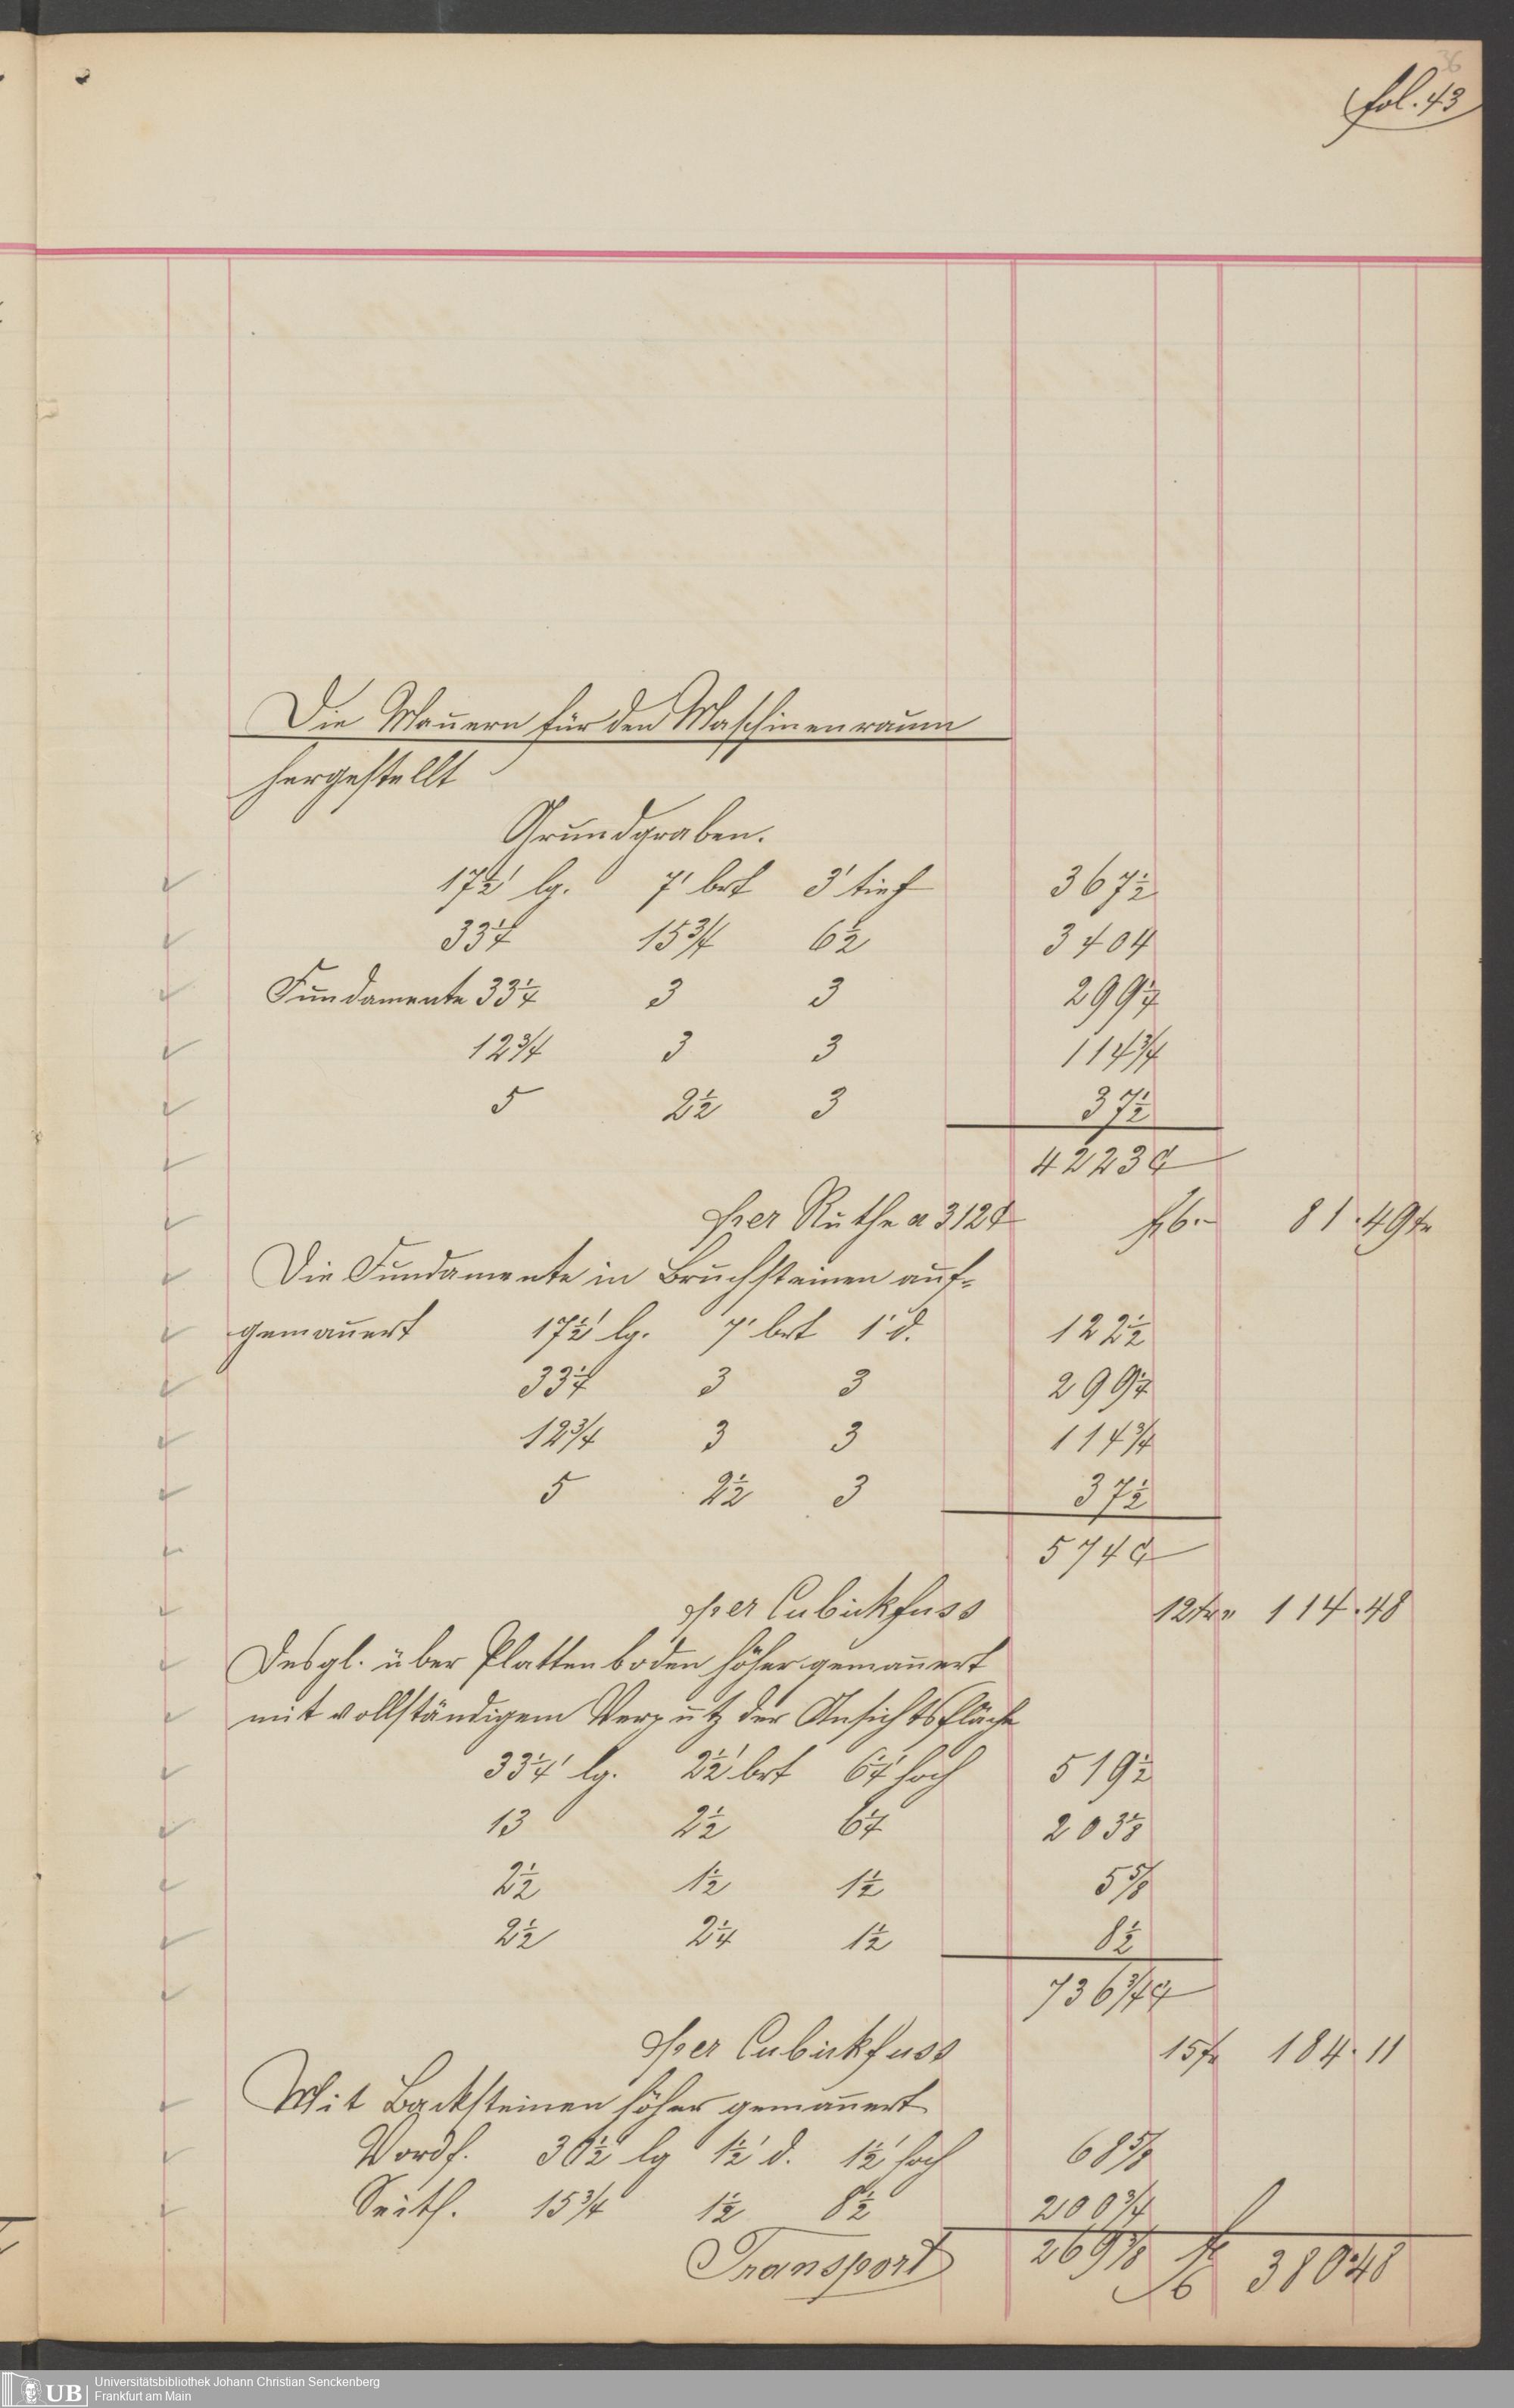 36
fol. 43
Die Mauern für den Maschinenraum
hergestellt
Grundgraben.
17½' lg. 7' brt 3' tief 367½
33¼ 15¾ 6½ 3404
Fundamente 33¼ 3 3 299¼
12¾ 3 3 114¾
5 2½ 3 37½
4223
per Ruthe a 312 f 6.– 81.49
Die Fundamente in Bruchsteinen auf-
gemauert 17½' lg. 7' brt 1' d. 122½
33¼ 3 3 299¼
12¾ 3 3 114¾
5 2½ 3 37½
574
per Cubickfuss 12 114.48
Desgl. über Plattenboden höher gemauert
mit vollständigem Verputz der Ansichtsfläche
33¼' lg. 2½' brt 6¼' hoch 519½
13 2½ 6¼ 203⅛
2½ 1½ 1½ 5⅝
2½ 2¼ 1½ 8½
736¾
per Cubickfuss 15 184.11
Mit Backsteinen höher gemauert
Vordf. 30½' lg 1½' d. 1½' hoch 68⅝
Seitf. 15¾ 1½ 8½ 200¾
Transport 269⅜ 380.48
UB Universitätsbibliothek Johann Christian Senckenberg
Frankfurt am Main